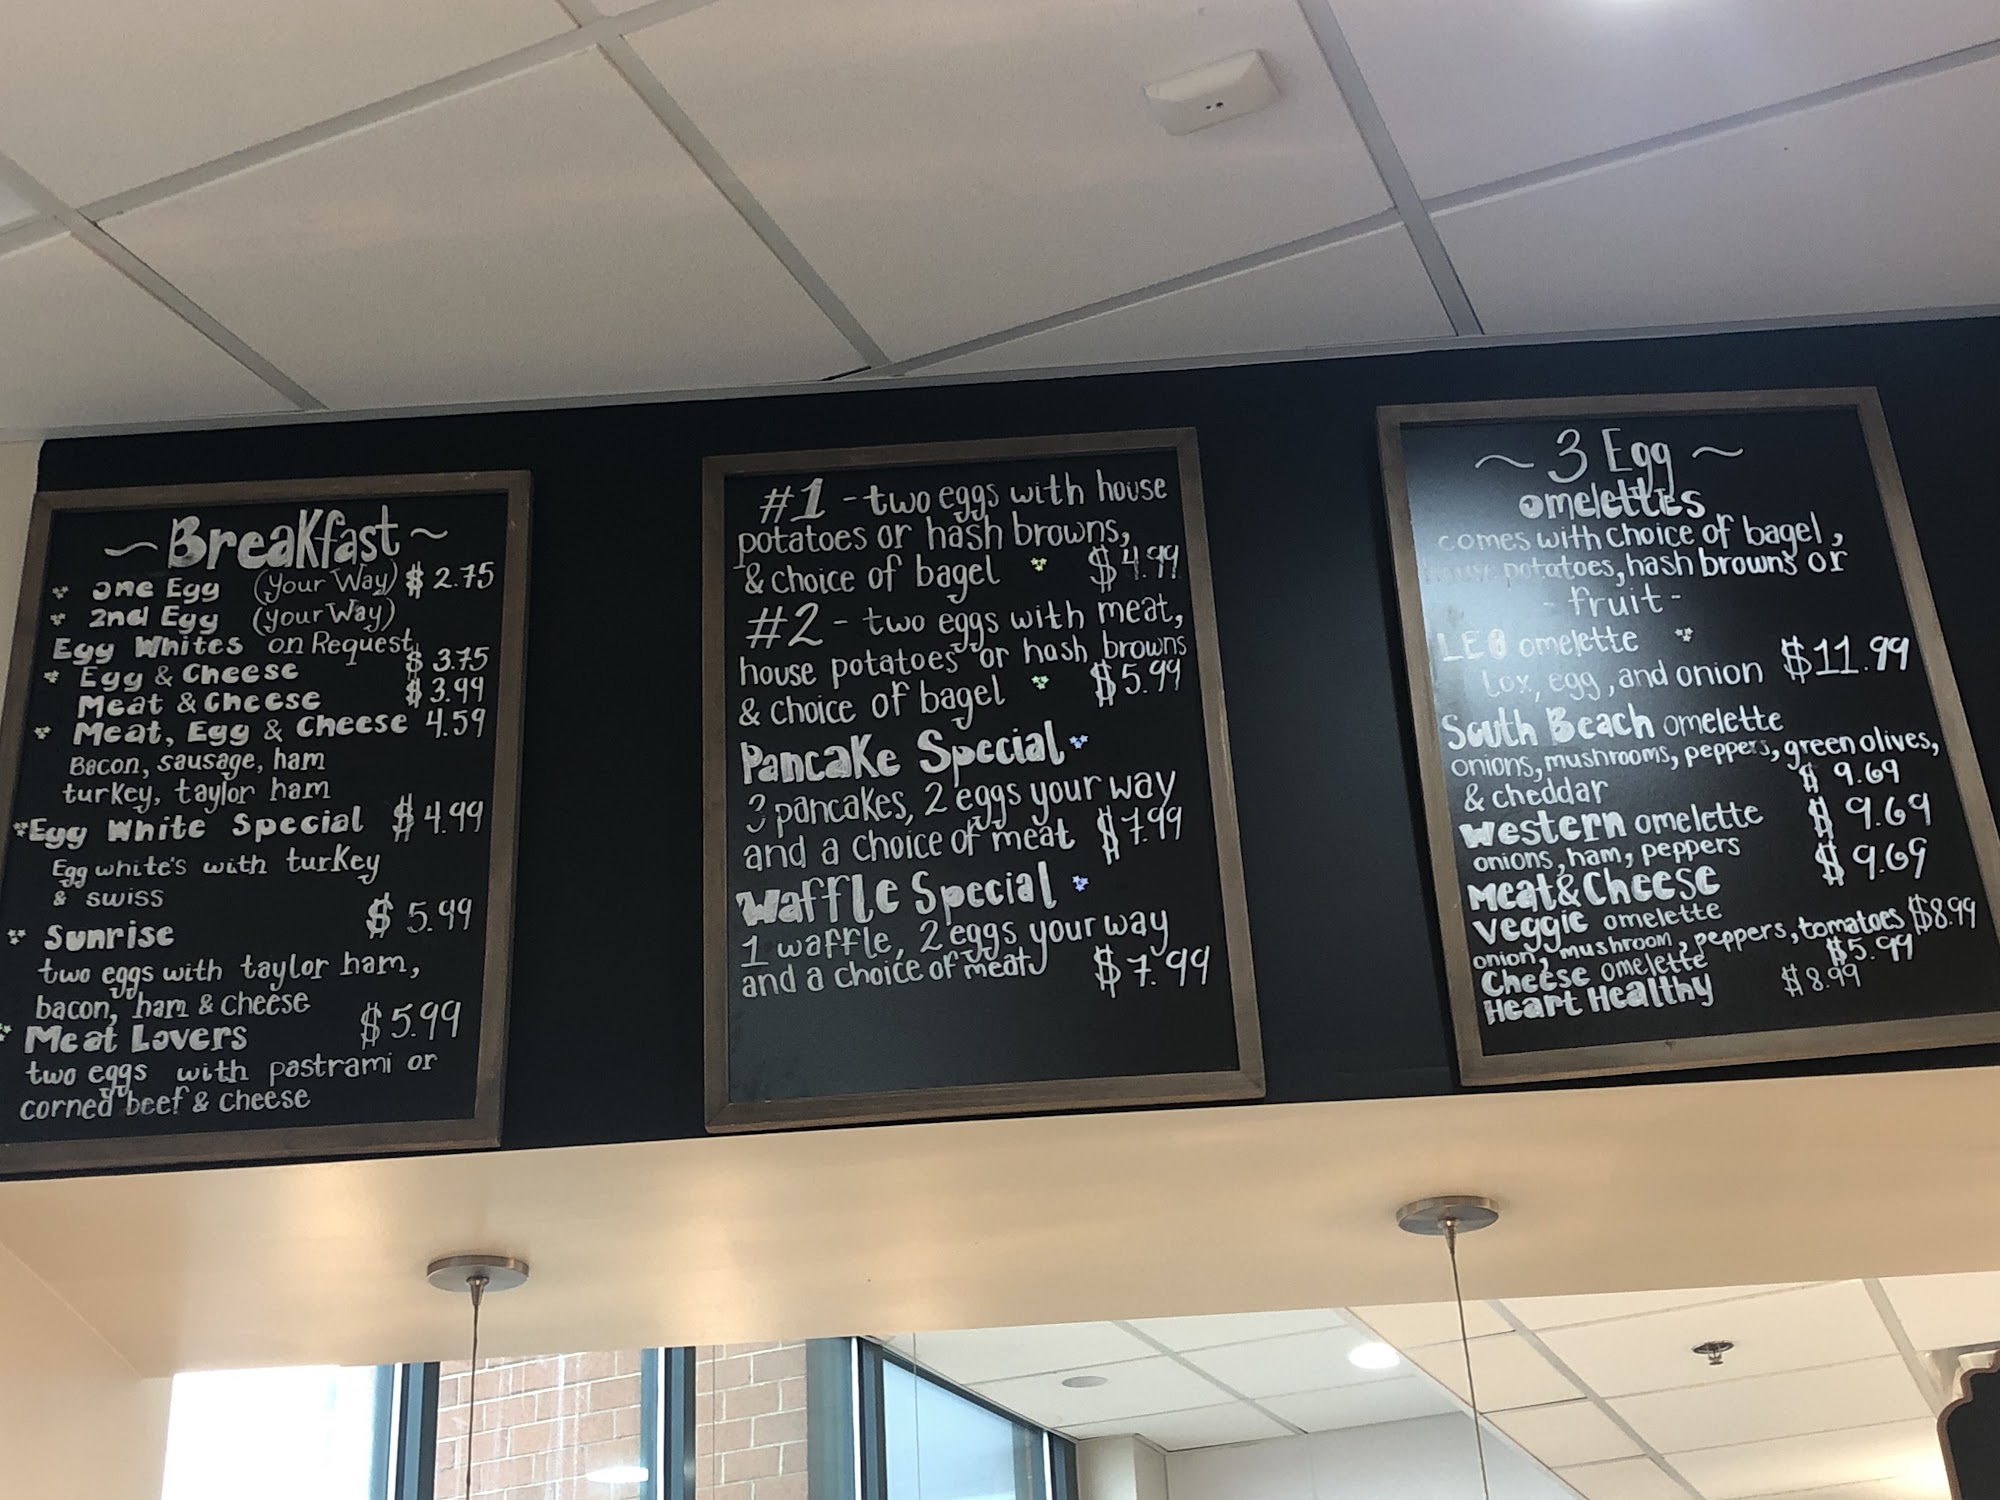 ~ Breakfast ~
one Egg (your Way) $2.75
2nd Egg (your Way)
Egg Whites on Request
Egg & Cheese $3.75
Meat & Cheese $3.99
Meat, Egg & Cheese 4.59
Bacon, sausage, ham
turkey, taylor ham
Egg White Special $4.99
Egg white's with turkey
& swiss
Sunrise $5.99
two eggs with taylor ham,
bacon, ham & cheese
Meat Lovers $5.99
two eggs with pastrami or
corned beef & cheese
#1 - two eggs with house
potatoes or hash browns,
& choice of bagel $4.99
#2 - two eggs with meat,
house potatoes or hash browns
& choice of bagel $5.99
Pancake Special
3 pancakes, 2 eggs your way
and a choice of meat $7.99
Waffle Special
1 waffle, 2 eggs your way
and a choice of meat $7.99
~ 3 Egg ~
omelettes
comes with choice of bagel,
house potatoes, hash browns or
- fruit -
LEO omelette
lox, egg, and onion $11.99
South Beach omelette
onions, mushrooms, peppers, green olives,
& cheddar $9.69
Western omelette $9.69
onions, ham, peppers
Meat & Cheese $9.69
Veggie omelette
onion, mushroom, peppers, tomatoes $8.99
Cheese omelette $5.99
Heart Healthy $8.99